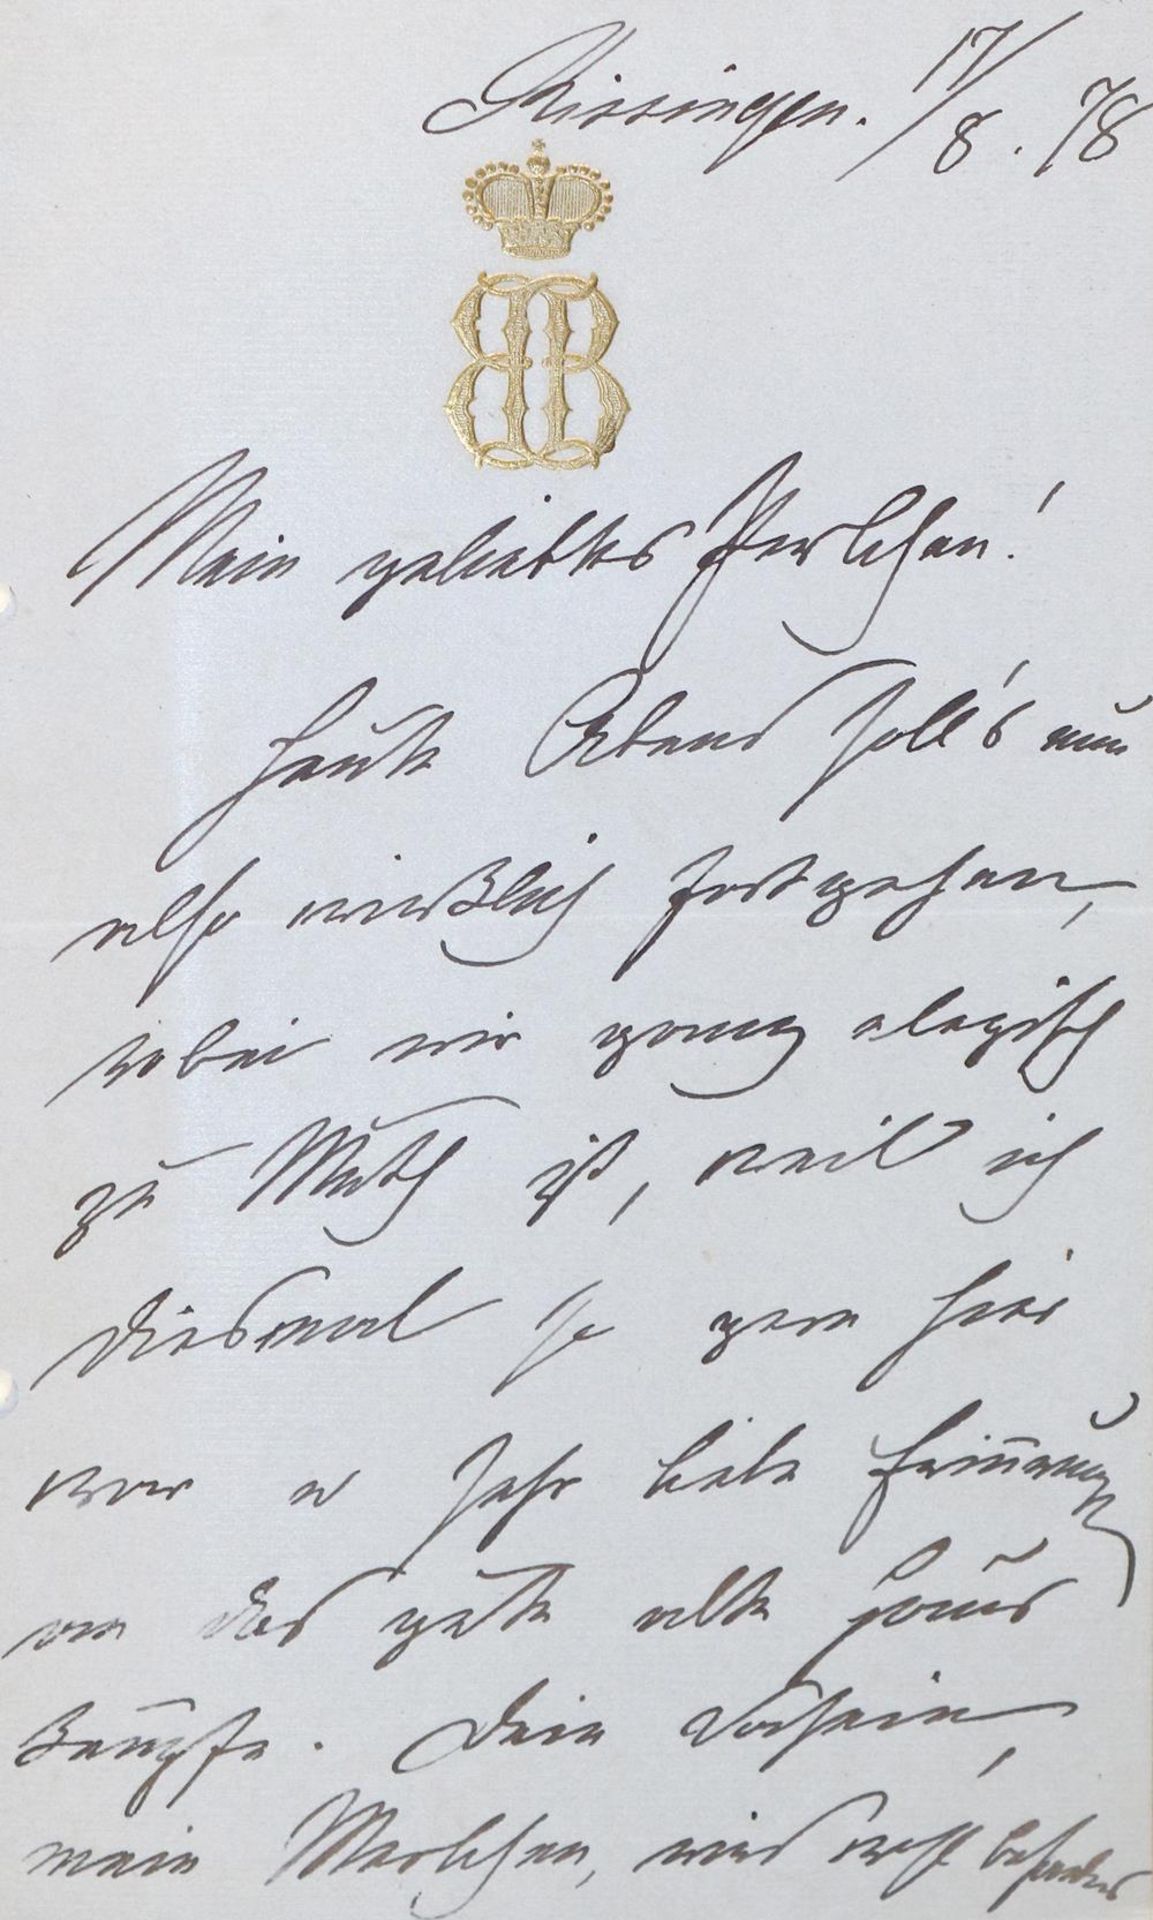 Kissingen. 17/8. 78
BB
Mein geliebtes Perlchen!
Heute Abend soll's nun
also wirklich fortgehen,
wobei mir ganz elegisch
zu Muth ist, weil ich
diesmal so gern hier
war u sehr liebe Erinnerung
an das gute alte Haus
knüpfe. Dein Dasein,
mein Perlchen, wird wohl besonders